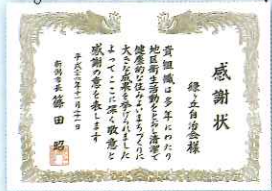 感謝状
緑ヶ丘自治会様
貴組織は多年にわたり
地区衛生活動をとおし清潔で
健康的な住みよいまちづくりに
大きな成果を挙げられました
よってここに深く敬意と
感謝の意を表します
平成二十六年十一月二十一日
新潟市長 篠田 昭